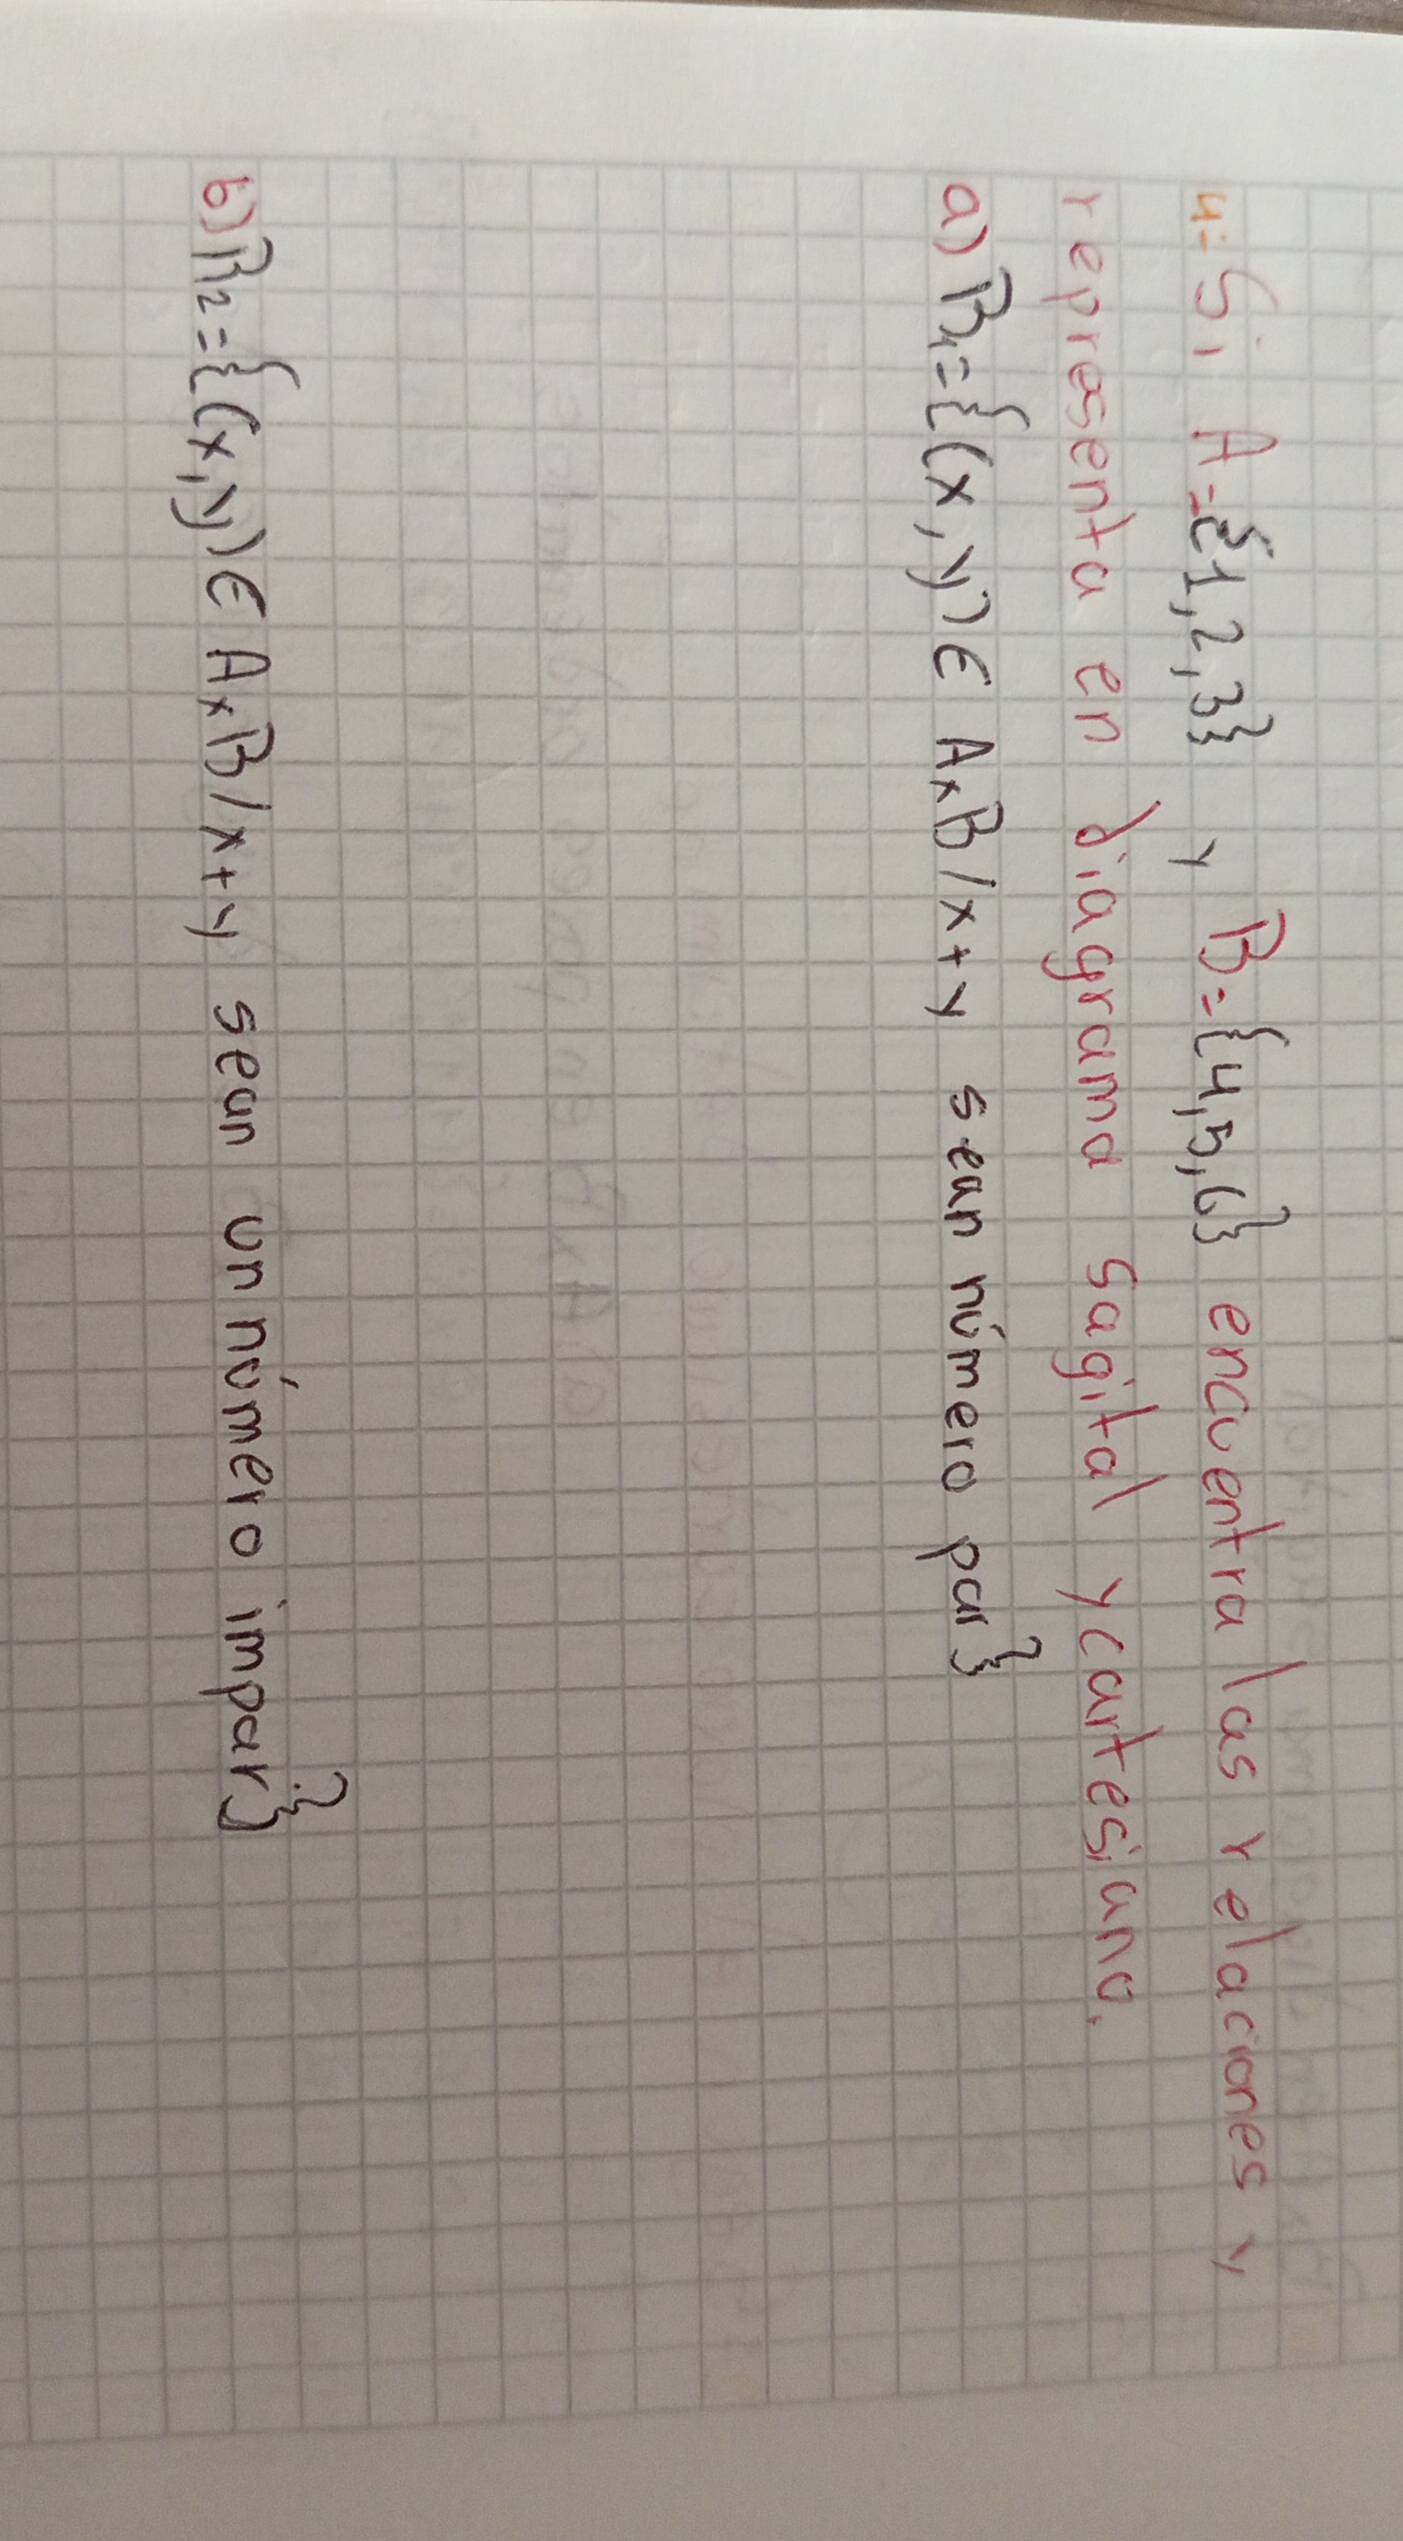 4:- Si A={1,2,3} y B={4,5,6} encuentra las relaciones y
representa en diagrama sagital y cartesiano.
a) R1={(x,y)∈ AxB/x+y sean número par}
b) R2={(x,y)∈ AxB/x+y sean un número impar}